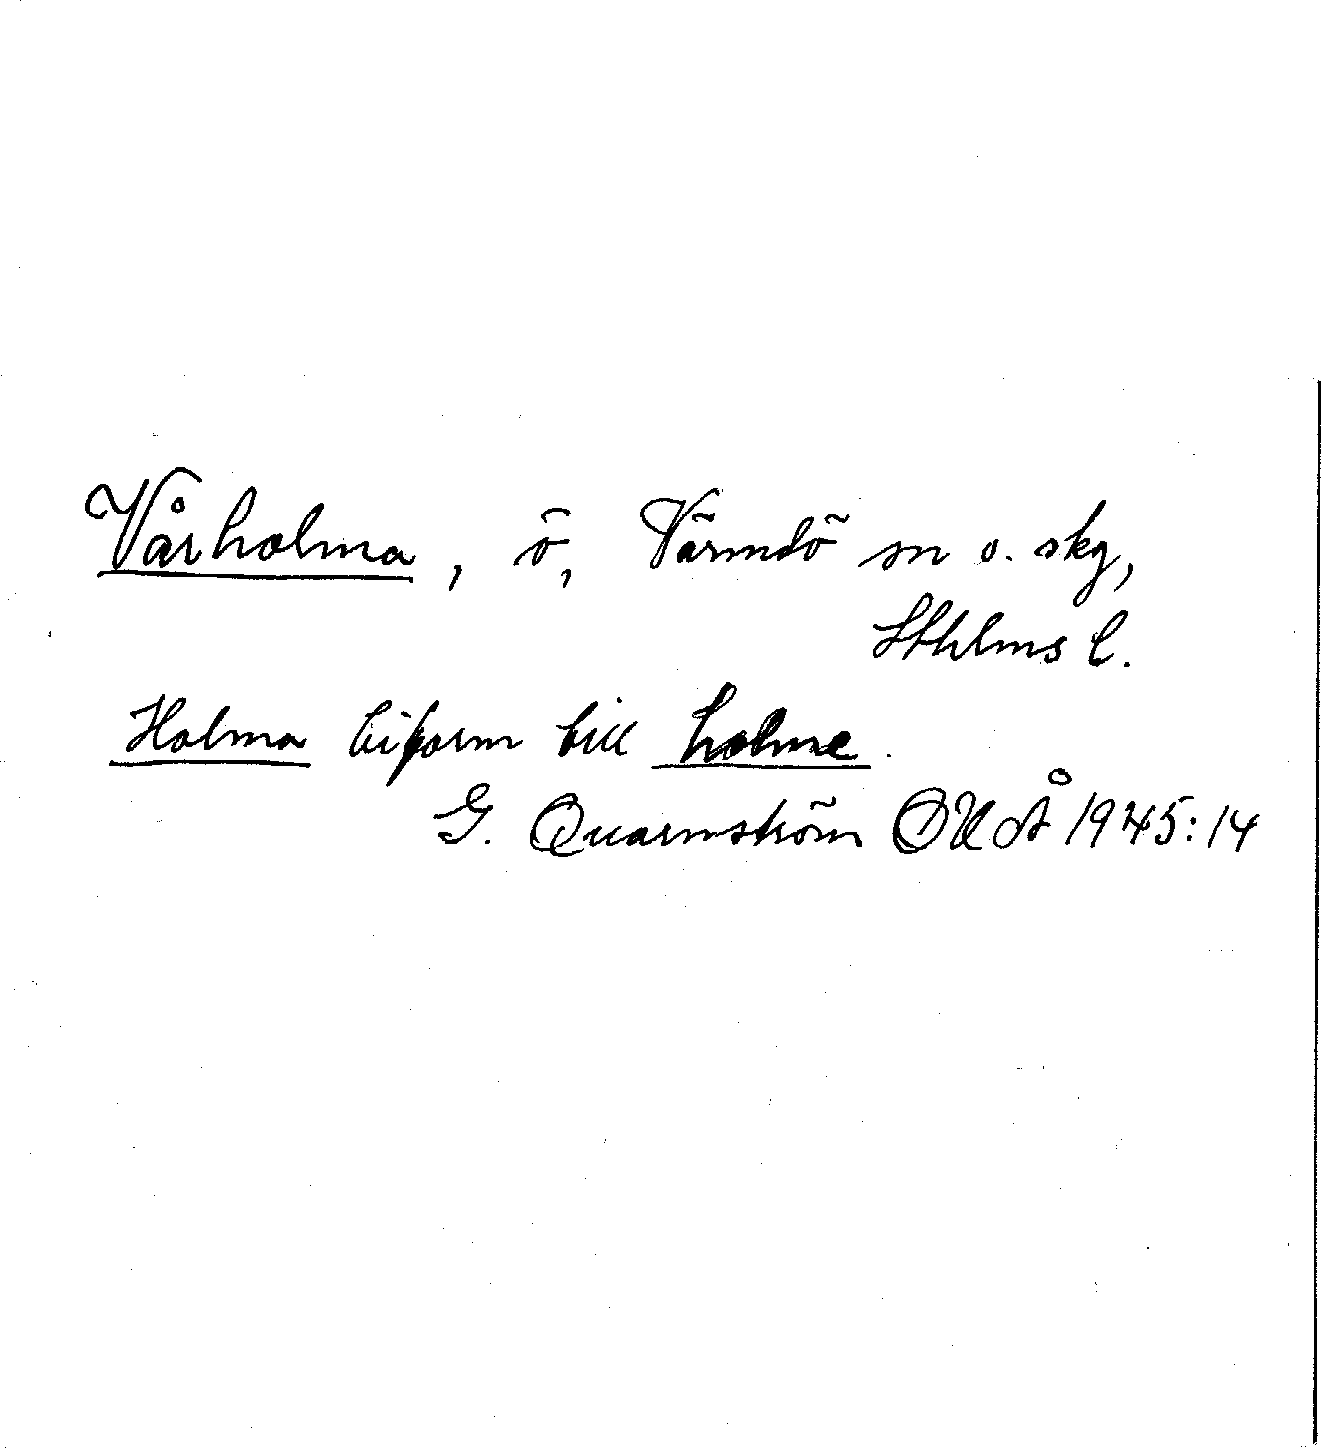 Vårholma, ö, Värmdö sn o. skg,
Sthlms l.
Holma biform till holme.
G. Quarnström OUÅ 1945:14